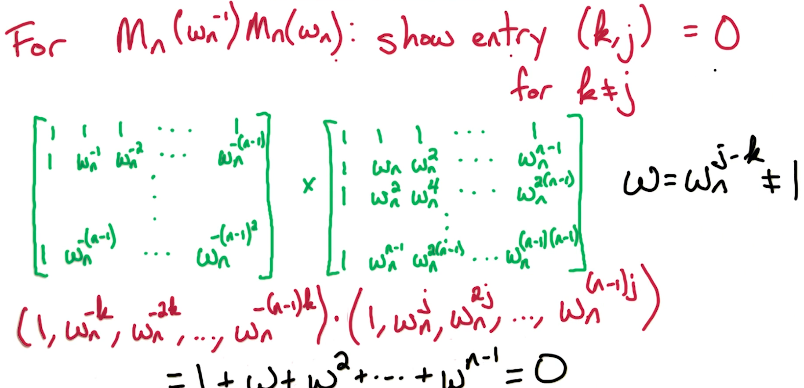 For Mₙ(ωₙ⁻¹)Mₙ(ωₙ): show entry (k,j) = 0
for k≠j
[1 1 1 ⋯ 1] × [1 1 1 ⋯ 1]
[1 ωₙ⁻¹ ωₙ⁻² ⋯ ωₙ^-(n-1)] [1 ωₙ ωₙ² ⋯ ωₙ^n-1]
[⋮] [1 ωₙ² ωₙ⁴ ⋯ ωₙ^2(n-1)]
[1 ωₙ^-(n-1) ⋯ ωₙ^-(n-1)²] [1 ωₙ^n-1 ωₙ^2(n-1) ⋯ ωₙ^(n-1)(n-1)]
ω = ωₙ^j-k ≠ 1
(1, ωₙ^-k, ωₙ^-2k, ..., ωₙ^-(n-1)k) · (1, ωₙ^j, ωₙ^2j, ..., ωₙ^(n-1)j)
= 1 + ω + ω² + ⋯ + ω^n-1 = 0